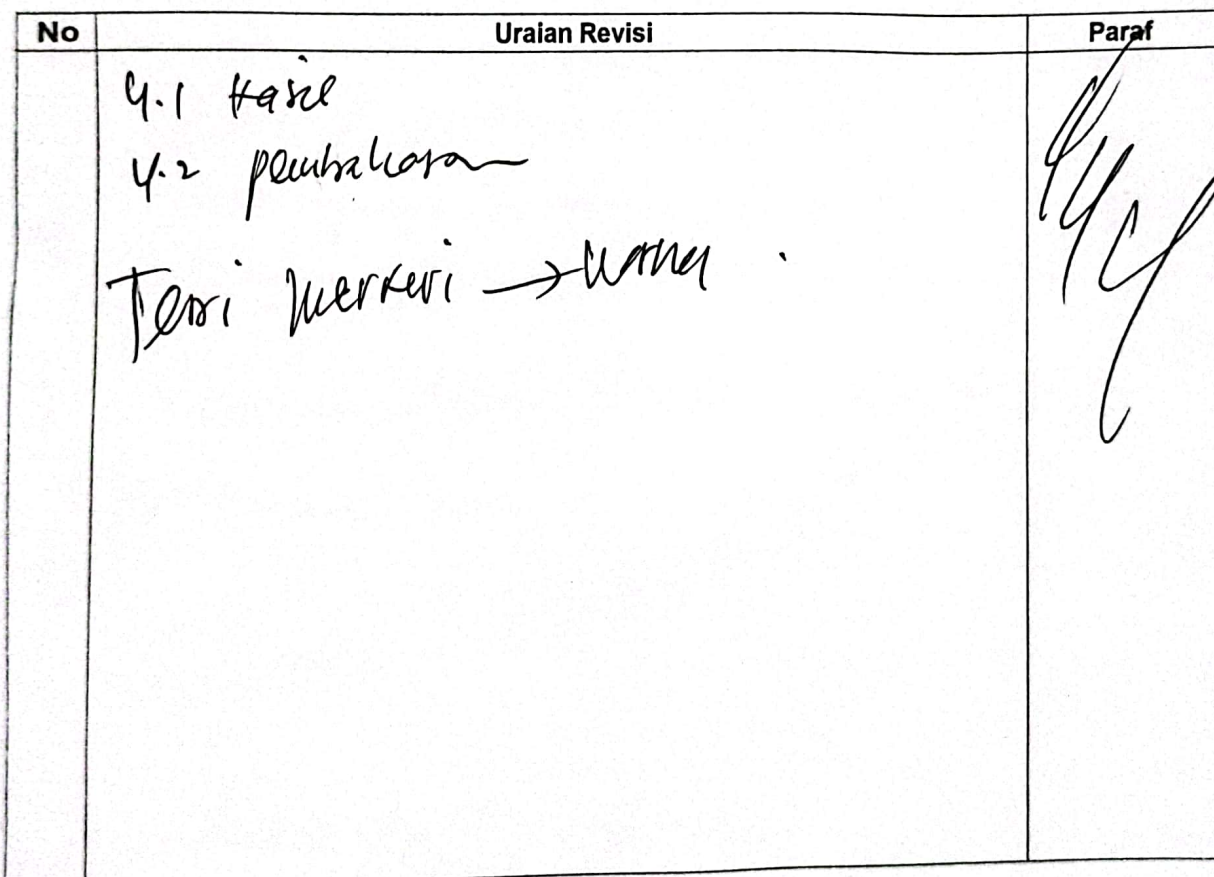 No Uraian Revisi Paraf
4.1 Hasil
4.2 pembahasan
Teori merkuri → warna